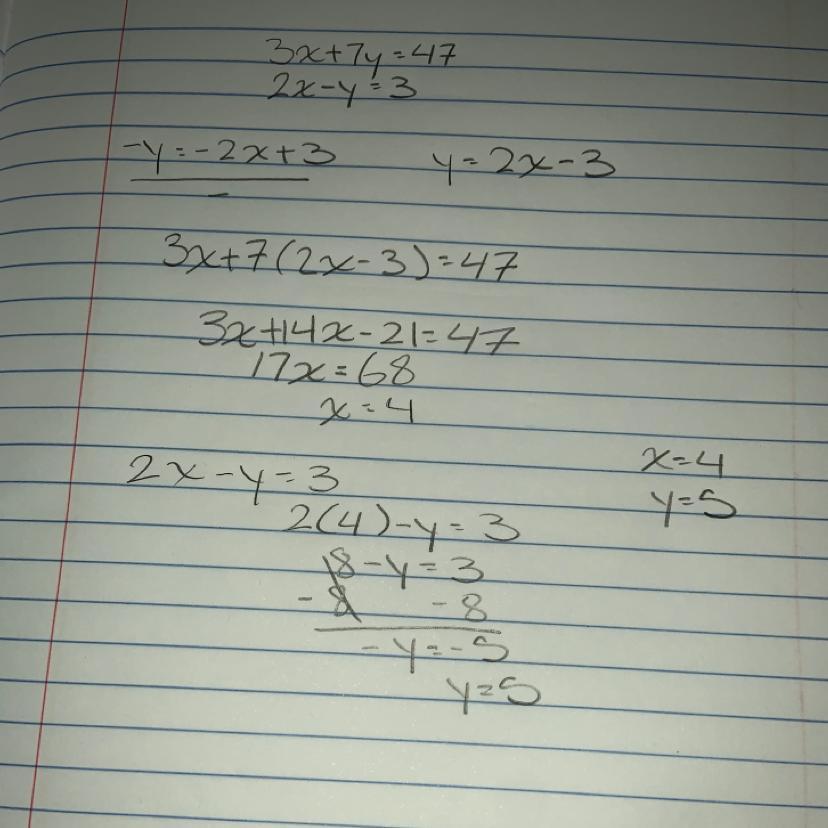 3x+7y=47
2x-y=3
-y=-2x+3 y=2x-3
-
3x+7(2x-3)=47
3x+14x-21=47
17x=68
x=4
2x-y=3
x=4
y=5
2(4)-y=3
8-y=3
-8 -8
-y=-5
y=5